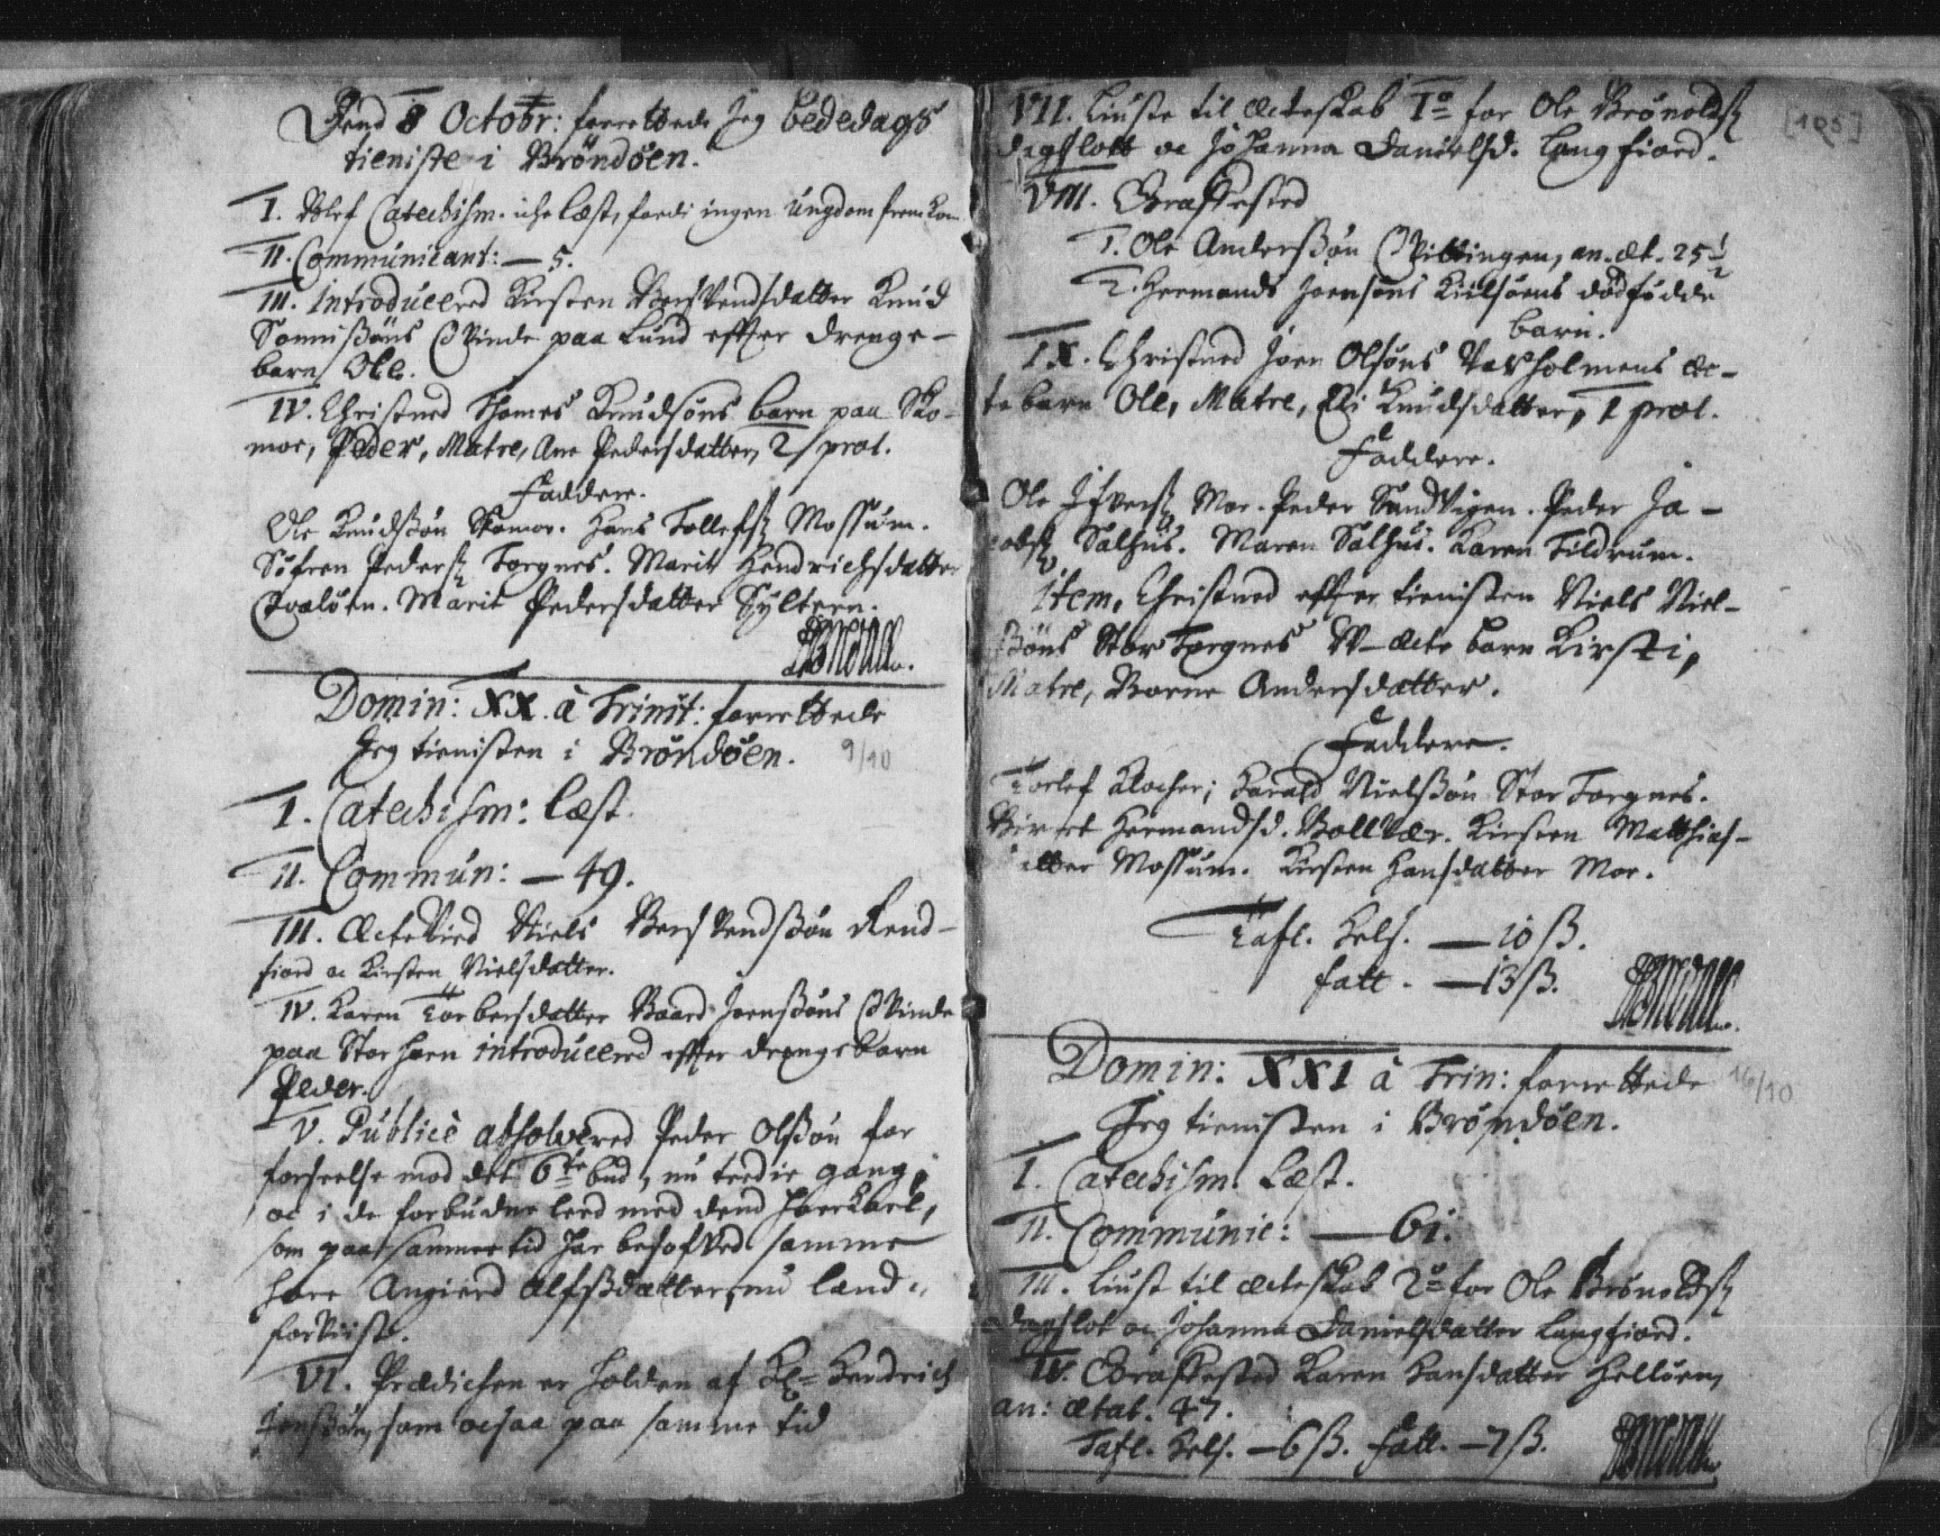 Dend 8 Octobr: forrettede Jeg bededags
tieniste i Bröndöen.
I. Blef Catechism. iche læst, fordi ingen Ungdom fremkom
II. Communicant: — 5.
III. Introducered Kirsten Bersvendsdatter Knud
Qvinde paa Lund efter drenge-
barn Ole.
IV. Christned Thomes Knudsöns barn paa Sko-
mor, Peder, Matre, Ane Pedersdatter, 2 prat.
Faddere.
Ole Knudsßön Skomor. Hans Tollefs. Mossum.
Söfren Peders. Torgnes. Marit Hendrichsdatter
Marit Pedersdatter Syltern.
Domin: XX. à Trinit: forrettede
Jeg tienisten i Bröndöen. 9/10
I. Catechism: læst.
II. Commun: — 49.
III. Ectevied Niels Bersvendsßön
fiord oc Kirsten Nielsdatter.
IV. Karen Torbersdatter Baard Joensßöns Qvinde
paa Storhorn introducered efter drengebarn
Peder.
V. Publicè absolvered Peder Olsßön for
forseelse mod det 6te bud, nu tredie gang,
oc i de forbudne leed med dend
som paa samme tid har besofved samme
hore Angierd Alfsßdatter, nu land-
forviist.
VI. Prædichen er holden af Hr Hendrich
Jensßön, som ocsaa paa samme tid
VII. Liuste til ecteskab 1o for Ole Brönolds.
oc Johanna Danielsd. Langfiord. [105]
VIII. Graffested
1. Ole Andersßön Qvittingen, an. æt. 25 1/2
2. Hermands Joensöns Kiilsöens dödfödde
barn.
IX. Christned Joen Olsöns Torholmens ec-
te barn Ole, Matre, Eli Knudsdatter, 1 prat.
Faddere.
Ole Ifvers. Mor. Peder Sandvigen. Peder Ja-
cobs. Salhus. Maren Salhus. Karen Tildrum.
Item, Christned efter tienisten Niels Niel-
ßöns Stor Torgnes W-ecte barn Kirsti,
Matre, Andersdatter.
Faddere.
Torlef Klocher; Harald Nielsßön Stor Torgnes.
Birret Hermandsd. Bollvær. Kirsten Matthias-
datter Mossum. Kirsten Hansdatter Mor.
Tafl. Hels. — 10 ß.
fatt. — 13 ß.
Domin: XXI à Trin: forrettede 16/10
Jeg tienisten i Bröndöen.
I. Catechism. Læst.
II. Communic: — 61.
III. Liust til ecteskab 2o for Ole Brönolds.
oc Johanna Danielsdatter Langfiord.
IV. Graffested Karen Hansdatter Hellöen,
an: ætat. 47.
Tafl. Hels. — 6 ß. fatt. — 7 ß.